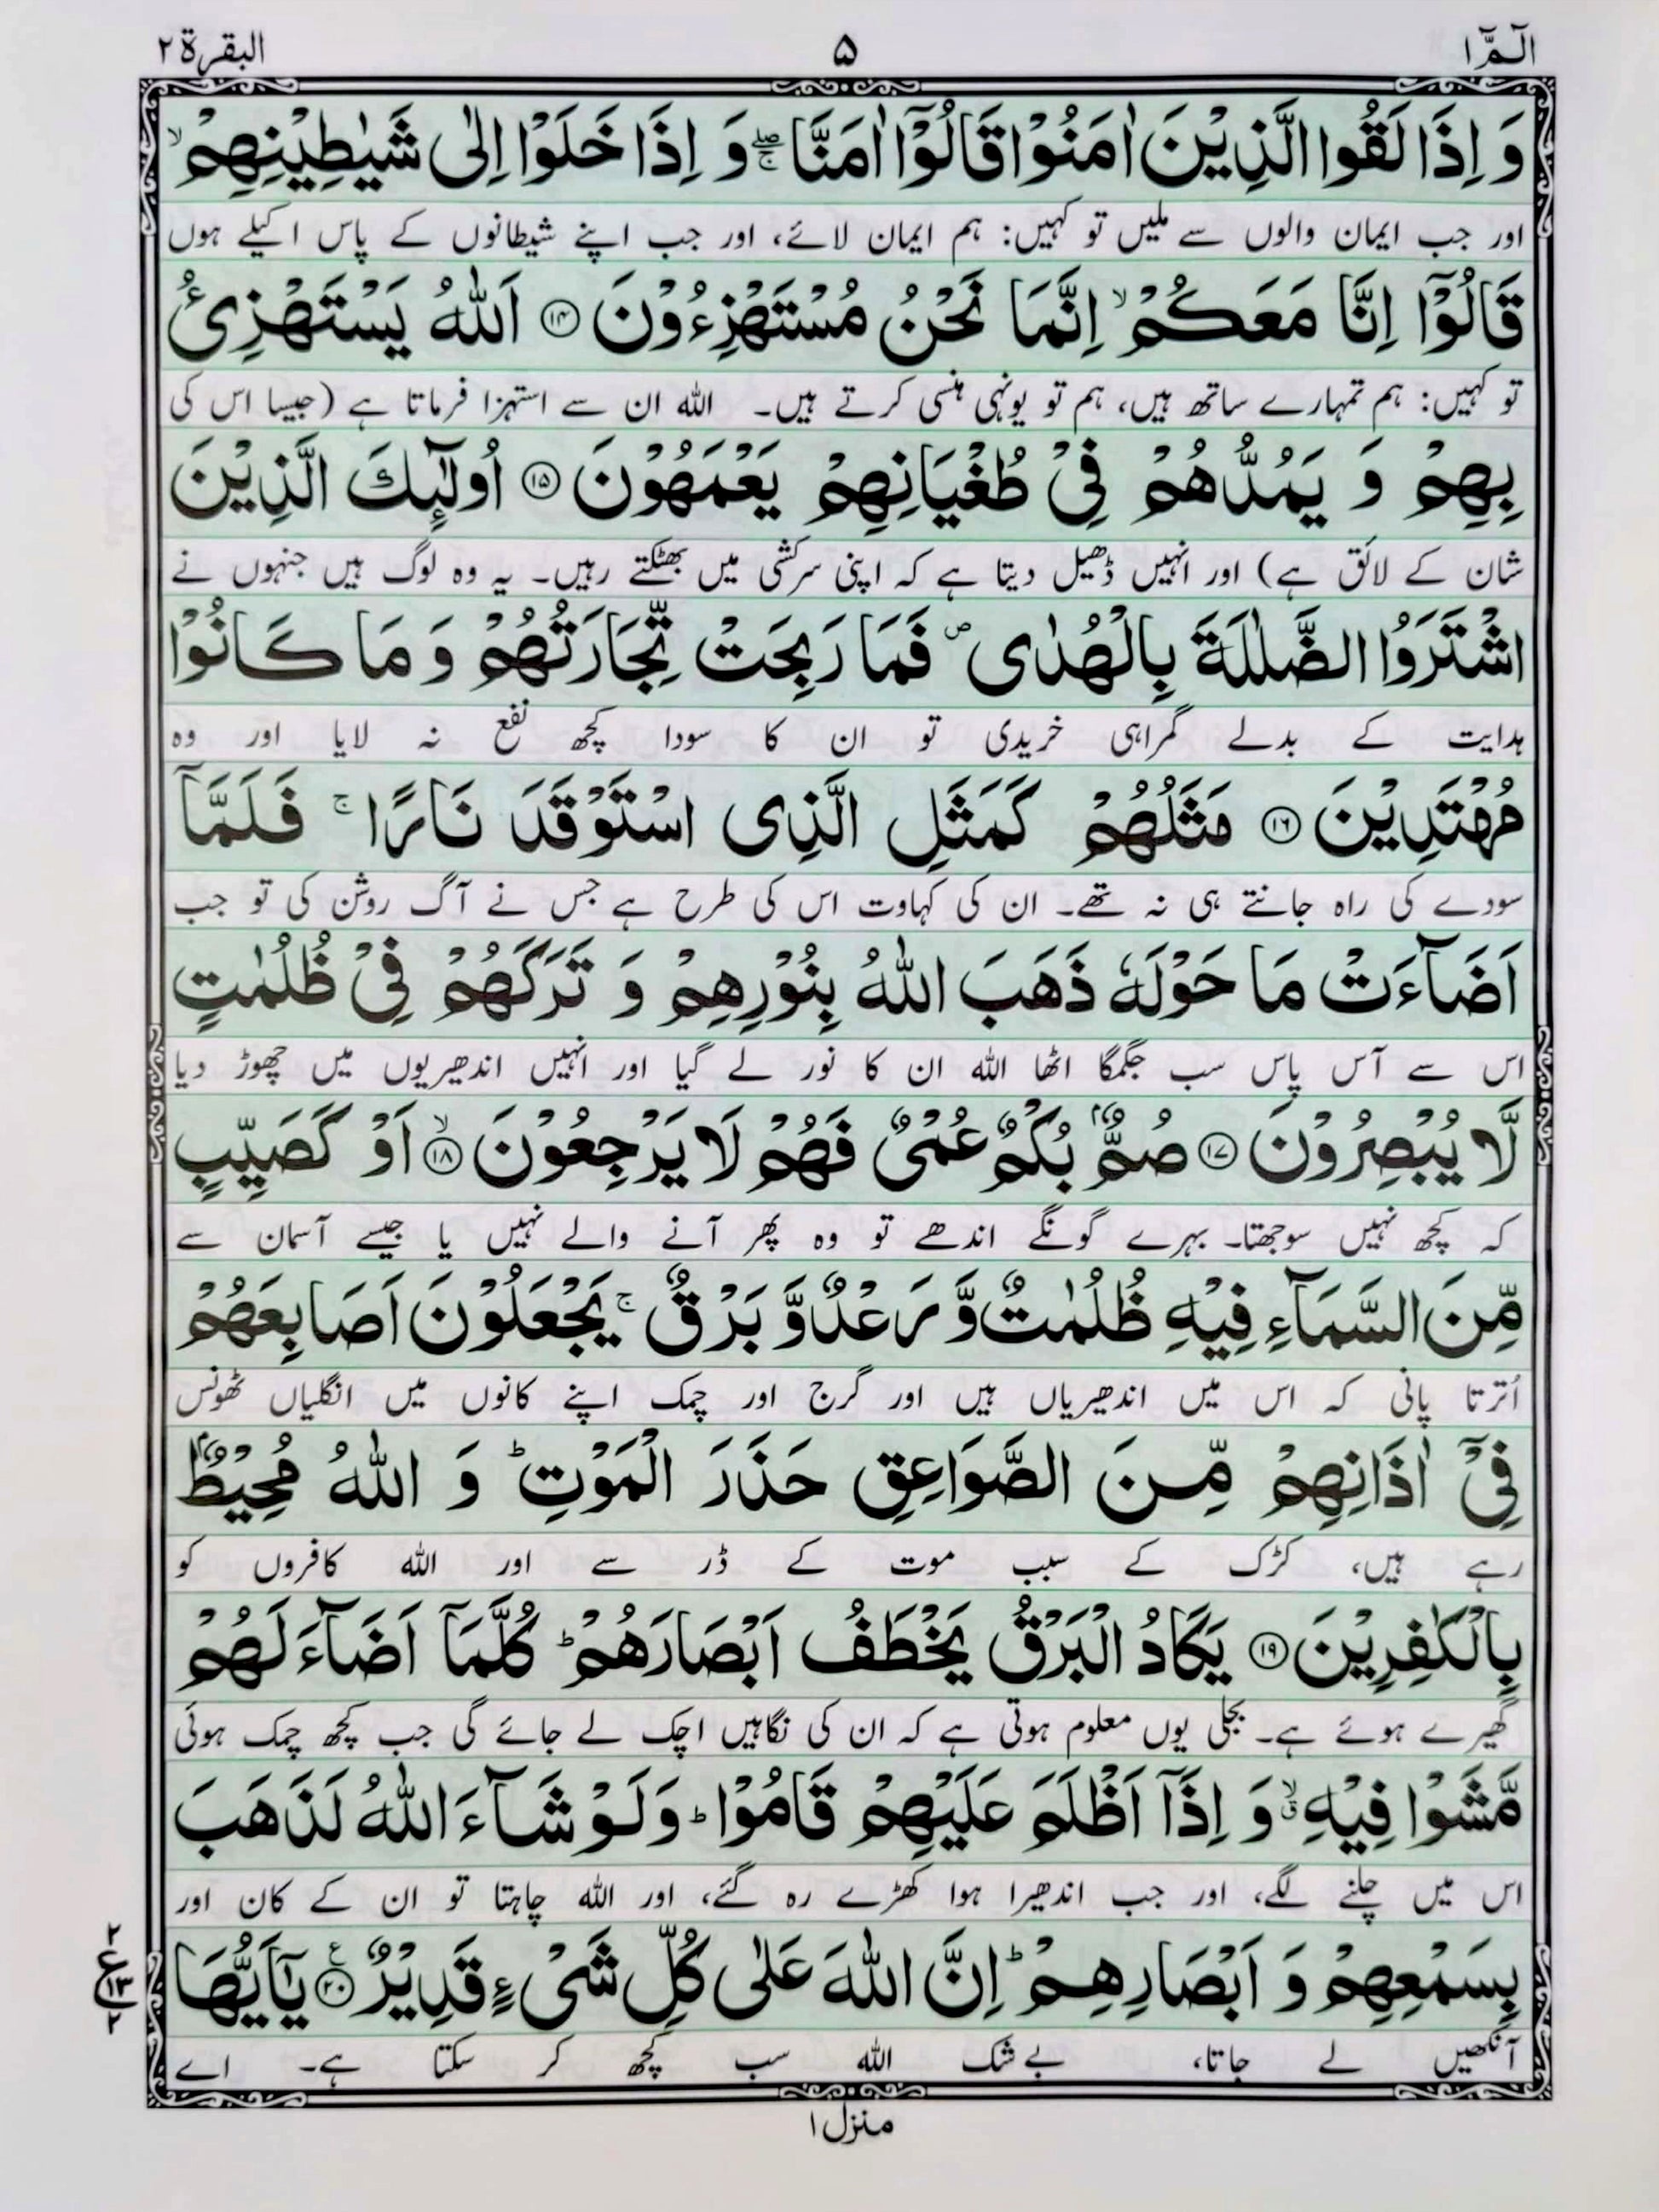 الٓمّٓ ١
۵
البقرة ٢
وَ اِذَا لَقُوا الَّذِیْنَ اٰمَنُوْا قَالُوْۤا اٰمَنَّا ۚۖ وَ اِذَا خَلَوْا اِلٰى شَیٰطِیْنِهِمْ ۙ
اور جب ایمان والوں سے ملیں تو کہیں: ہم ایمان لائے، اور جب اپنے شیطانوں کے پاس اکیلے ہوں
قَالُوْۤا اِنَّا مَعَكُمْ ۙ اِنَّمَا نَحْنُ مُسْتَهْزِءُوْنَ ﴿۱۴﴾ اَللّٰهُ یَسْتَهْزِئُ
تو کہیں: ہم تمہارے ساتھ ہیں، ہم تو یونہی ہنسی کرتے ہیں۔ اللہ ان سے استہزا فرماتا ہے (جیسا اس کی
بِهِمْ وَ یَمُدُّهُمْ فِیْ طُغْیَانِهِمْ یَعْمَهُوْنَ ﴿۱۵﴾ اُولٰٓىِٕكَ الَّذِیْنَ
شان کے لائق ہے) اور انہیں ڈھیل دیتا ہے کہ اپنی سرکشی میں بھٹکتے رہیں۔ یہ وہ لوگ ہیں جنہوں نے
اشْتَرَوُا الضَّلٰلَةَ بِالْهُدٰى ۪ فَمَا رَبِحَتْ تِّجَارَتُهُمْ وَ مَا كَانُوْا
ہدایت کے بدلے گمراہی خریدی تو ان کا سودا کچھ نفع نہ لایا اور وہ
مُهْتَدِیْنَ ﴿۱۶﴾ مَثَلُهُمْ كَمَثَلِ الَّذِی اسْتَوْقَدَ نَارًا ۚ فَلَمَّاۤ
سودے کی راہ جانتے ہی نہ تھے۔ ان کی کہاوت اس کی طرح ہے جس نے آگ روشن کی تو جب
اَضَآءَتْ مَا حَوْلَهٗ ذَهَبَ اللّٰهُ بِنُوْرِهِمْ وَ تَرَكَهُمْ فِیْ ظُلُمٰتٍ
اس سے آس پاس سب جگمگا اٹھا اللہ ان کا نور لے گیا اور انہیں اندھیریوں میں چھوڑ دیا
لَّا یُبْصِرُوْنَ ﴿۱۷﴾ صُمٌّۢ بُكْمٌ عُمْیٌ فَهُمْ لَا یَرْجِعُوْنَ ﴿۱۸﴾ ۙ اَوْ كَصَیِّبٍ
کہ کچھ نہیں سوجھتا۔ بہرے گونگے اندھے تو وہ پھر آنے والے نہیں یا جیسے آسمان سے
مِّنَ السَّمَآءِ فِیْهِ ظُلُمٰتٌ وَّ رَعْدٌ وَّ بَرْقٌ ۚ یَجْعَلُوْنَ اَصَابِعَهُمْ
اُترتا پانی کہ اس میں اندھیریاں ہیں اور گرج اور چمک اپنے کانوں میں انگلیاں ٹھونس
فِیْۤ اٰذَانِهِمْ مِّنَ الصَّوَاعِقِ حَذَرَ الْمَوْتِ ؕ وَ اللّٰهُ مُحِیْطٌۢ
رہے ہیں، کڑک کے سبب موت کے ڈر سے اور اللہ کافروں کو
بِالْكٰفِرِیْنَ ﴿۱۹﴾ یَكَادُ الْبَرْقُ یَخْطَفُ اَبْصَارَهُمْ ؕ كُلَّمَاۤ اَضَآءَ لَهُمْ
گھیرے ہوئے ہے۔ بجلی یوں معلوم ہوتی ہے کہ ان کی نگاہیں اچک لے جائے گی جب کچھ چمک ہوئی
مَّشَوْا فِیْهِ ۙۗ وَ اِذَاۤ اَظْلَمَ عَلَیْهِمْ قَامُوْا ؕ وَ لَوْ شَآءَ اللّٰهُ لَذَهَبَ
اس میں چلنے لگے، اور جب اندھیرا ہوا کھڑے رہ گئے، اور اللہ چاہتا تو ان کے کان اور
بِسَمْعِهِمْ وَ اَبْصَارِهِمْ ؕ اِنَّ اللّٰهَ عَلٰى كُلِّ شَیْءٍ قَدِیْرٌ ﴿۲۰﴾ ع یٰۤاَیُّهَا
۲
ع ۱۳
۲
آنکھیں لے جاتا، بے شک اللہ سب کچھ کر سکتا ہے۔ اے
منزل ۱